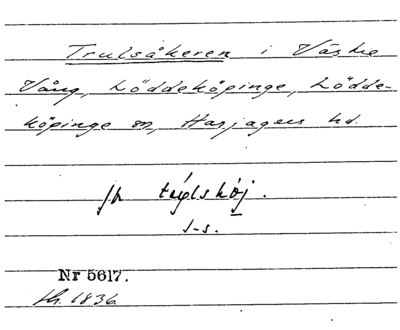 Trulsåkeren i Västre
Vång, Löddeköpinge, Lödde-
köpinge sn, Harjagers hd.
jfr téglshøj.
s-s.
Nr 5617.
sk. 1836